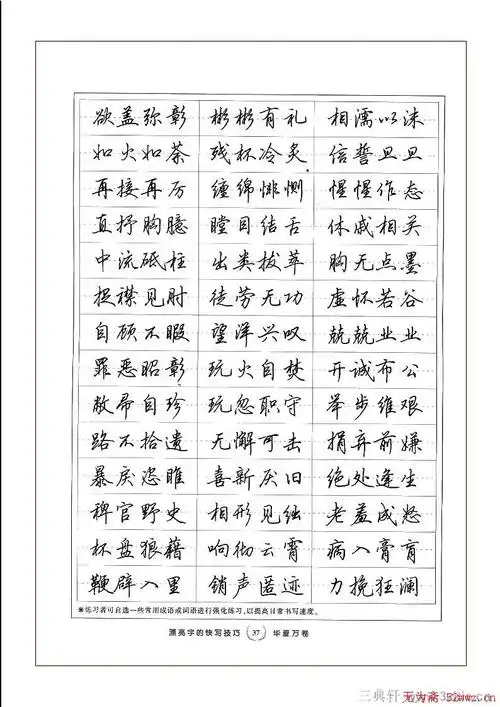 欲盖弥彰 彬彬有礼 相濡以沫
如火如荼 残杯冷炙 信誓旦旦
再接再厉 缠绵悱恻 惺惺作态
直抒胸臆 瞠目结舌 休戚相关
中流砥柱 出类拔萃 胸无点墨
捉襟见肘 徒劳无功 虚怀若谷
自顾不暇 望洋兴叹 兢兢业业
罪恶昭彰 玩火自焚 开诚布公
敝帚自珍 玩忽职守 举步维艰
路不拾遗 无懈可击 捐弃前嫌
暴戾恣睢 喜新厌旧 绝处逢生
稗官野史 相形见绌 老羞成怒
杯盘狼藉 响彻云霄 病入膏肓
鞭辟入里 销声匿迹 力挽狂澜
※练习者可自选一些常用成语或词语进行强化练习,以提高日常书写速度。
漂亮字的快写技巧 37 华夏万卷
三典轩